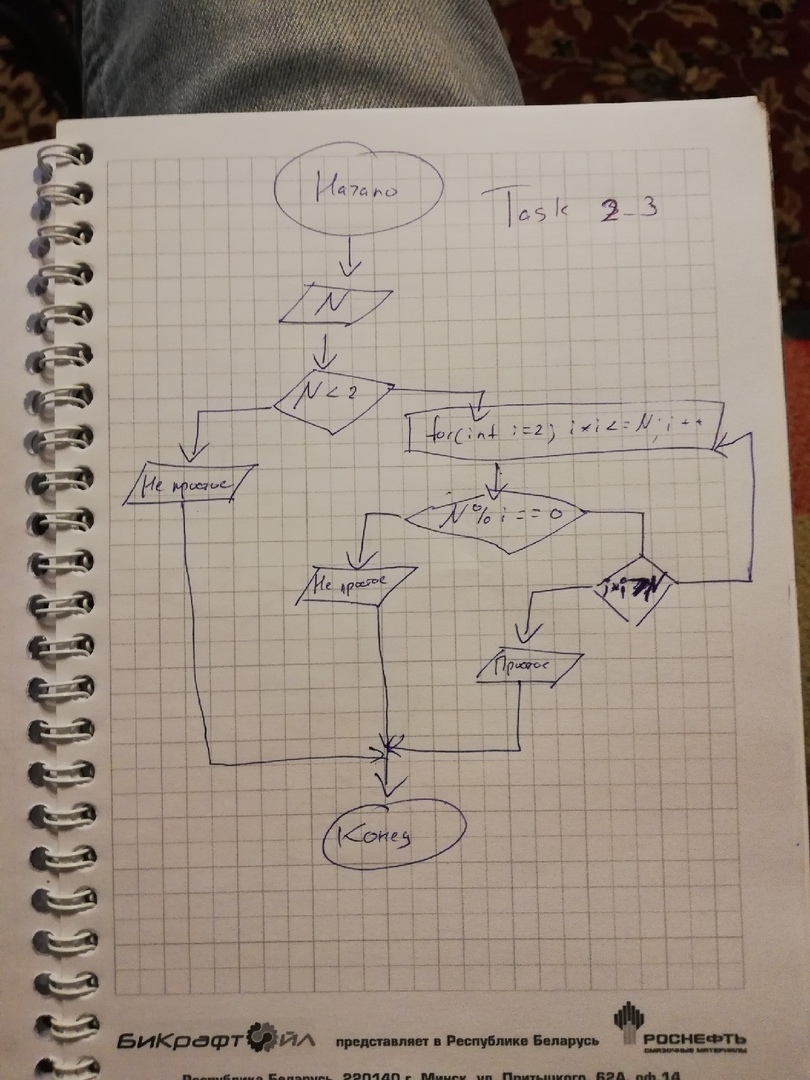 Начало
Task 2_3
N
N < 2
for(int i=2; i*i<=N; i++
Не простое
N % i == 0
Не простое
Простое
Конец
БиКрафт ОЙЛ представляет в Республике Беларусь РОСНЕФТЬ
СМАЗОЧНЫЕ МАТЕРИАЛЫ
Республика Беларусь, 220140 г. Минск, ул. Притыцкого, 62А, оф.14